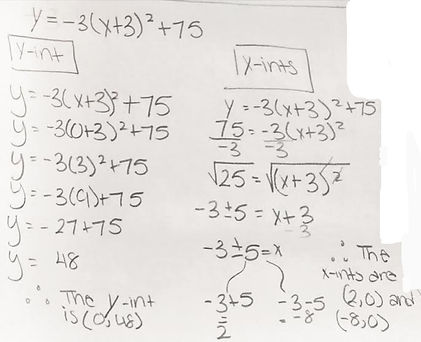 y = -3(x+3)² + 75
y-int
y = -3(x+3)² + 75
y = -3(0+3)² + 75
y = -3(3)² + 75
y = -3(9) + 75
y = -27 + 75
y = 48
∴ The y-int
is (0,48)
x-ints
y = -3(x+3)² + 75
75 = -3(x+3)²
-3 -3
√25 = √(x+3)²
-3 ± 5 = x + 3
- 3
-3 ± 5 = x
-3+5 -3-5
= = -8
2
∴ The
x-ints are
(2,0) and
(-8,0)